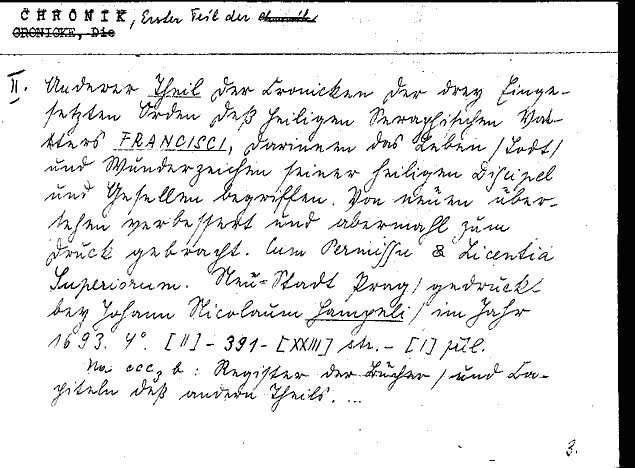 CHRONIK, Erster Teil der Chronik
CRONICKE, Die
II. Anderer Theil der Cronicken der drey Einge-
setzten Orden deß heiligen Seraphischen Vat-
ters FRANCISCI, darinnen das Leben / Todt /
und Wunderzeichen seiner heiligen Discipel
und Gesellen begriffen. Von neuen über-
sehen verbessert und abermahl zum
Druck gebracht. Cum Permissu & Licentia
Superiorum. Neu=Stadt Prag / gedruckt
bey Johann Nicolaum Hampeli / im Jahr
1693. 4°. [II] - 391 - [XXIII] str. - [I] příl.
Na ccc₃ b : Register der Bücher / und Ca-
piteln deß andern Theils. ...
3.